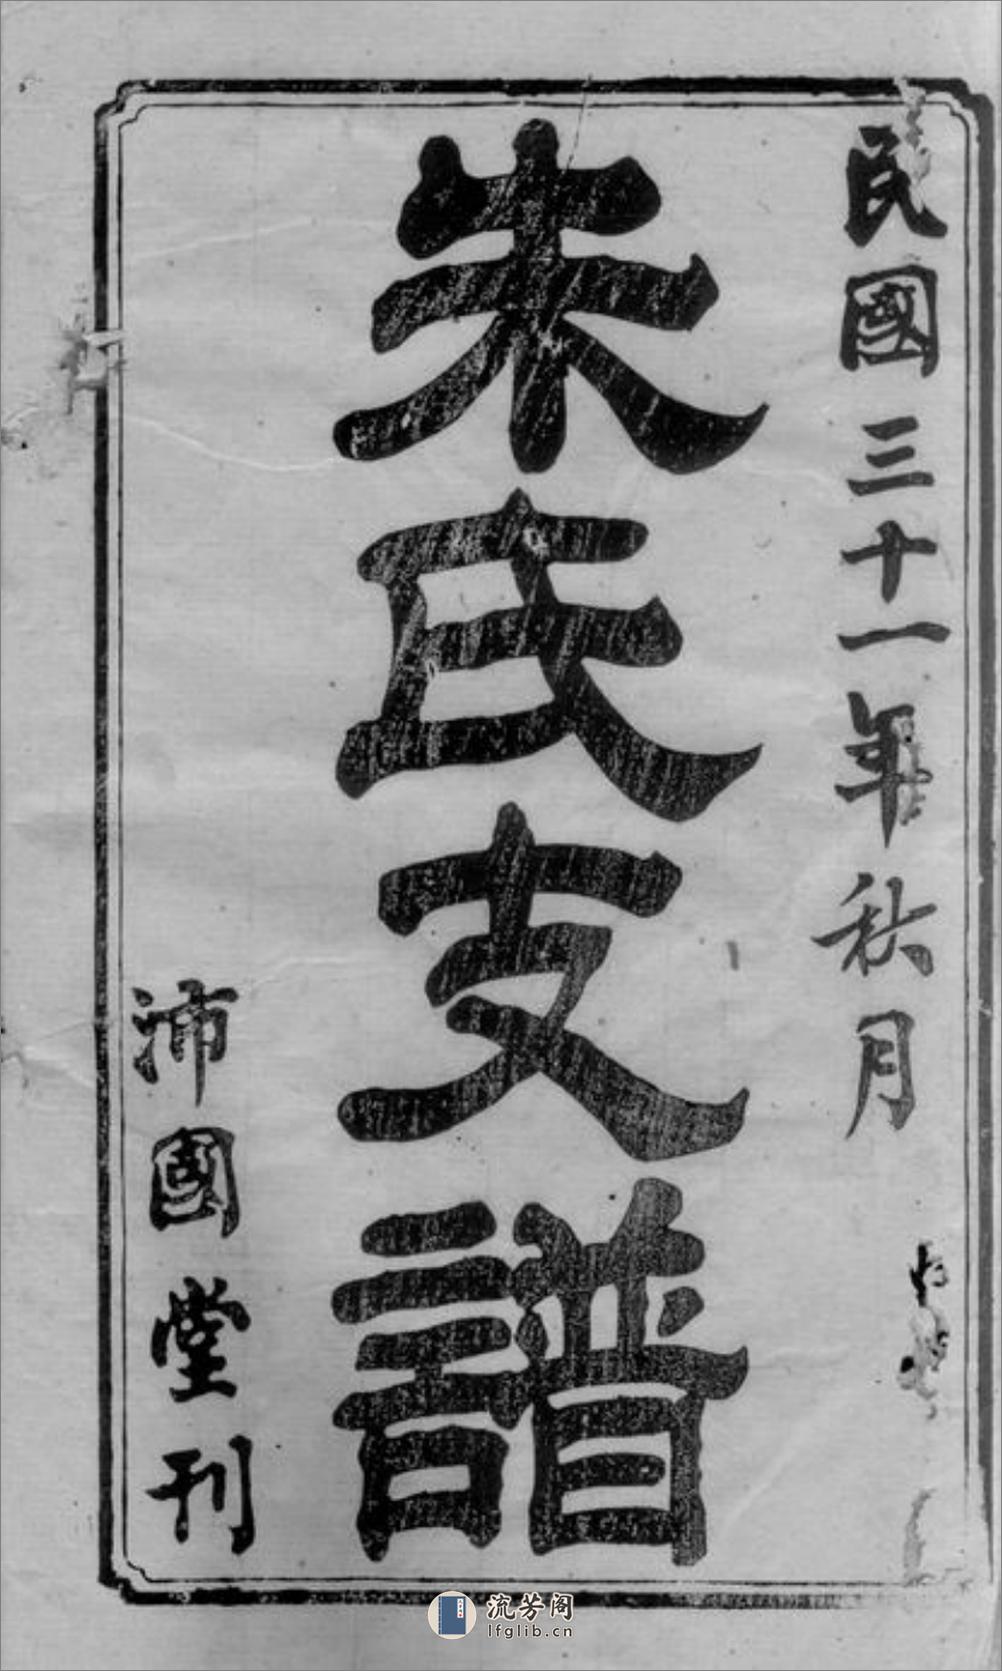 民國三十一年秋月
朱氏支譜
沛國堂刊
流芳阁
lfglib.cn